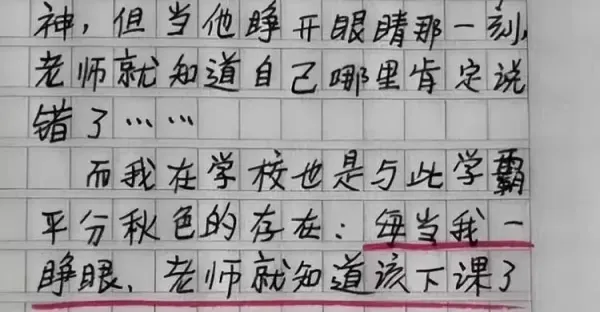 神，但当他睁开眼睛那一刻，
老师就知道自己哪里肯定说
错了……
而我在学校也是与此学霸
平分秋色的存在：每当我一
睁眼，老师就知道该下课了